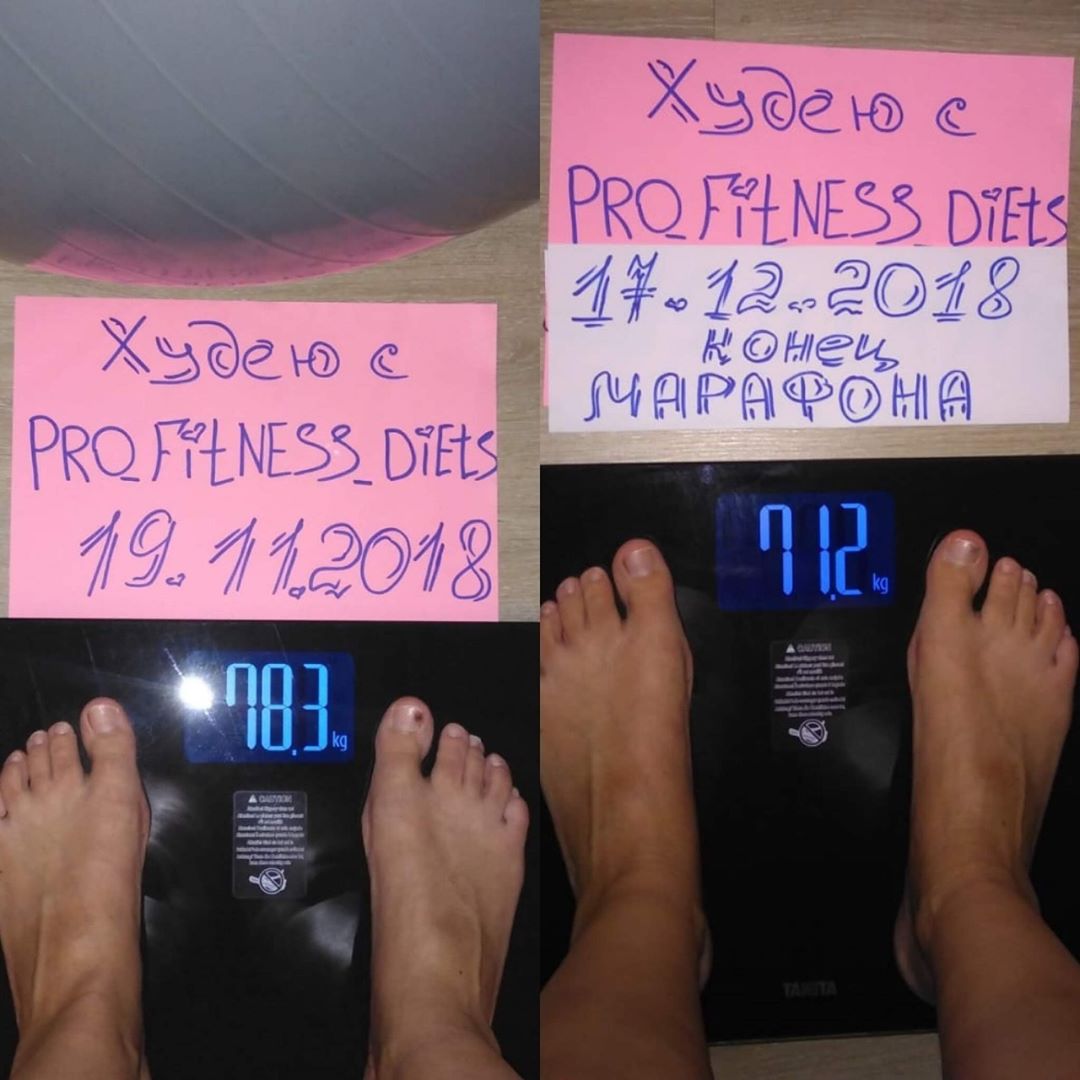 Худею с
PRO_FitNESS_DiEts
19.11.2018
78.3 kg
CAUTION
Худею с
PRO_FitNESS_DiEts
17.12.2018
конец
МАРАФОНА
71.2 kg
CAUTION
TANITA